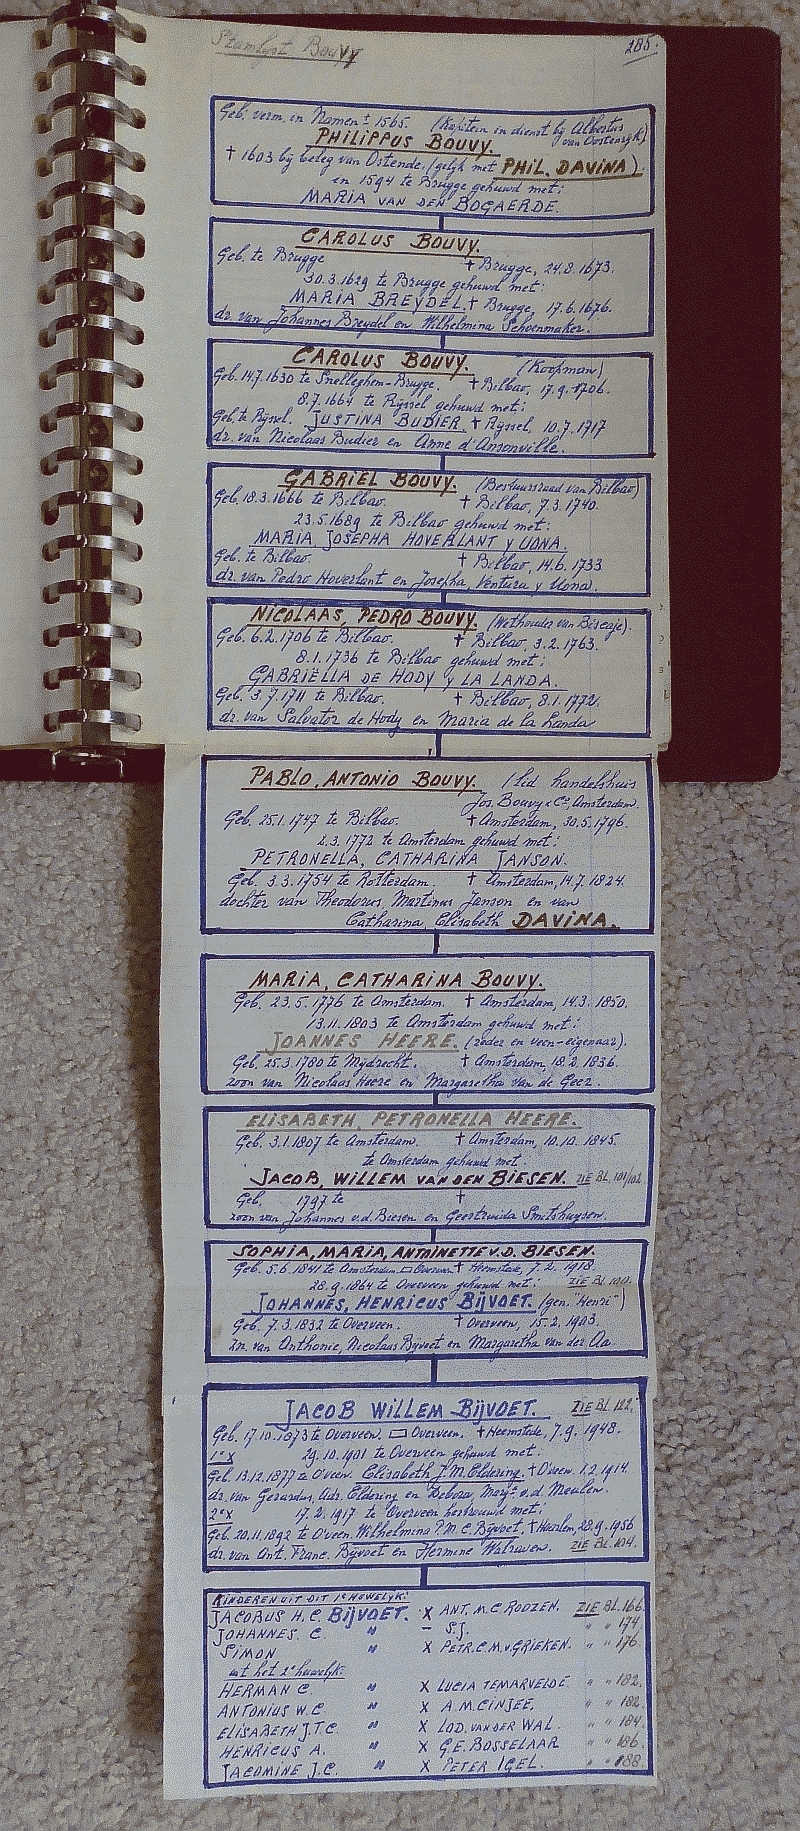 Stamlyst Bouvy
285.
Geb. verm. in Namen ± 1565. (Kapitein in dienst by Albertus van Oostenryk)
PHILIPPUS BOUVY.
† 1603 by beleg van Ostende. (gelyk met PHIL. DAVINA).
in 1594 te Brugge gehuwd met:
MARIA VAN DEN BOGAERDE.
CAROLUS BOUVY.
Geb. te Brugge † Brugge, 24.8.1673.
30.3.1629 te Brugge gehuwd met:
MARIA BREYDEL. † Brugge, 17.6.1676.
dr. van Johannes Breydel en Wilhelmina Schoenmaker.
CAROLUS BOUVY. (Koopman)
Geb. 14.7.1630 te Snelleghem-Brugge. † Bilbao, 17.9.1706.
8.7.1664 te Ryssel gehuwd met:
Geb. te Ryssel. JUSTINA BUDIER. † Ryssel, 10.7.1717
dr. van Nicolaas Budier en Anne d'Ansonville.
GABRIEL BOUVY. (Bestuursraad van Bilbao)
Geb. 18.3.1666 te Bilbao. † Bilbao, 7.3.1740.
23.5.1689 te Bilbao gehuwd met:
MARIA JOSEPHA HOVERLANT y UONA.
Geb. te Bilbao. † Bilbao, 14.6.1733
dr. van Pedro Hoverlant en Josepha, Ventura y Uona.
NICOLAAS, PEDRO BOUVY. (Wethouder van Biscaje).
Geb. 6.2.1706 te Bilbao. † Bilbao, 3.2.1763.
8.1.1736 te Bilbao gehuwd met:
GABRIËLLA DE HODY y LA LANDA.
Geb. 3.7.1711 te Bilbao. † Bilbao, 8.1.1772.
dr. van Salvator de Hody en Maria de la Landa
PABLO, ANTONIO BOUVY. (lid handelshuis
Jos. Bouvy & Co, Amsterdam.
Geb. 25.1.1747 te Bilbao. † Amsterdam, 30.5.1796.
2.3.1772 te Amsterdam gehuwd met:
PETRONELLA, CATHARINA JANSON.
Geb. 3.3.1754 te Rotterdam. † Amsterdam, 14.7.1824.
dochter van Theodorus, Martinus Janson en van
Catharina, Elisabeth DAVINA.
MARIA, CATHARINA BOUVY.
Geb. 23.5.1776 te Amsterdam. † Amsterdam, 14.3.1850.
13.11.1803 te Amsterdam gehuwd met:
JOANNES HEERE. (reder en veen-eigenaar).
Geb. 25.3.1780 te Mydrecht. † Amsterdam, 18.2.1836.
zoon van Nicolaas Heere en Margaretha van de Geer.
ELISABETH, PETRONELLA HEERE.
Geb. 3.1.1807 te Amsterdam. † Amsterdam, 10.10.1845.
te Amsterdam gehuwd met
JACOB, WILLEM VAN DEN BIESEN. ZIE BL. 101/102
Geb. 1797 te †
zoon van Johannes v.d. Biesen en Geertruida Smitshuysen.
SOPHIA, MARIA, ANTOINETTE V.D. BIESEN.
Geb. 5.6.1841 te Amsterdam. Overveen † Heemstede, 7.2.1918.
28.9.1864 te Overveen gehuwd met: ZIE BL. 100.
JOHANNES, HENRICUS BIJVOET. (gen. "Henri")
Geb. 7.3.1832 te Overveen. † Overveen, 15.2.1903.
zn. van Anthonie, Nicolaas Byvoet en Margaretha van der Aa.
JACOB WILLEM BIJVOET. ZIE BL. 122.
Geb. 17.10.1873 te Overveen. Overveen. † Heemstede, 7.9.1948.
1e X 29.10.1901 te Overveen gehuwd met.
Geb. 13.12.1877 te O'veen. Elisabeth J.M. Eldering. † O'veen. 1.2.1914.
dr. van Gerardus, Adr. Eldering en Debora, Marga v.d. Meulen.
2e X 17.2.1917 te Overveen hertrouwd met:
Geb. 20.11.1892 te O'veen. Wilhelmina P.M.C. Byvoet, † Haarlem, 28.9.1956
dr. van Ant. Franc. Byvoet en Hermine Walraven. ZIE BL. 104.
KINDEREN UIT DIT 1e HUWELIJK:
JACOBUS H.C. BIJVOET. X ANT. M.C. ROOZEN. ZIE BL. 166
JOHANNES. C " – S.J. " " 174
SIMON " X PETR. C.M. v. GRIEKEN. " " 176
uit het 2e huwelijk:
HERMAN C. " X LUCIA TEMARVELDE " " 182.
ANTONIUS W.C. " X A.M. CINJEE. " " 182
ELISABETH J.T.C. " X LOD. VAN DER WAL. " " 184.
HENRICUS A. " X G.E. BOSSELAAR " " 186
JACOMINE J.C. " X PETER IGEL. " " 188